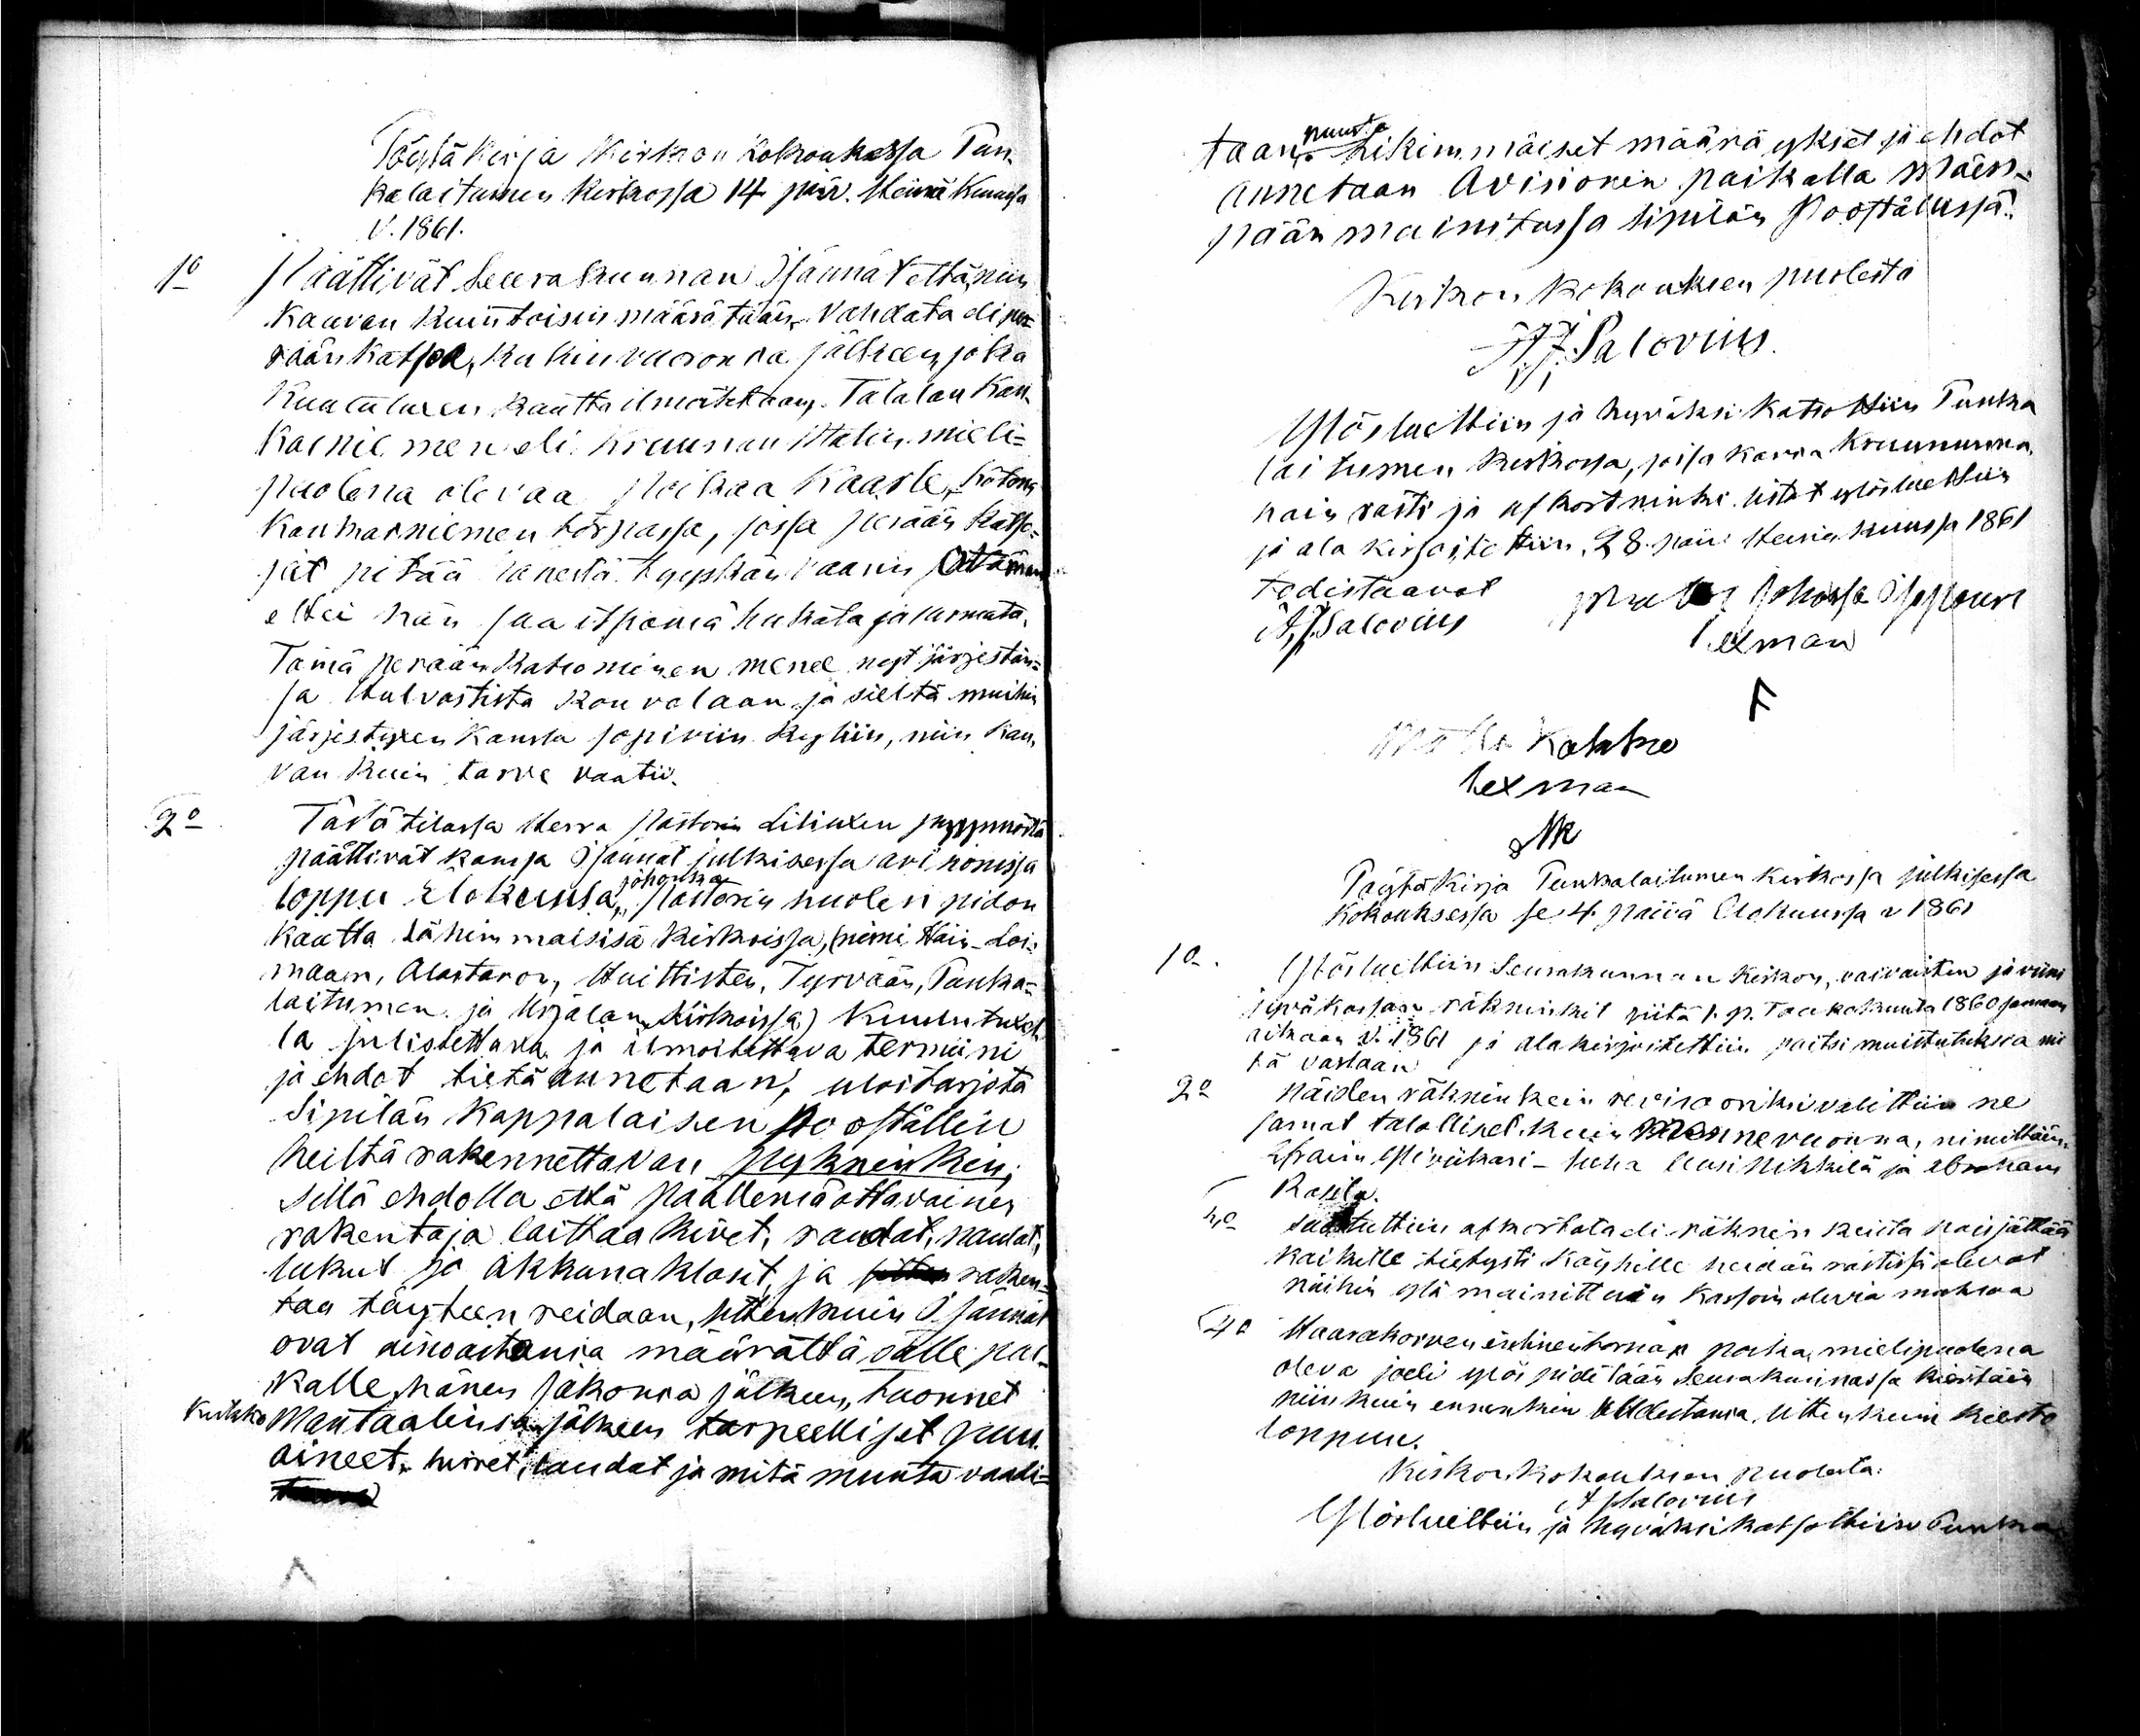 Pöytäkirja Kirkon kokouksessa Pun-
kalaitumen kirkossa 14 päiv. Heinä Kuussa
V. 1861.
1o Päättivät Seurakunnan Isännät että niin
kauvan kuin toisin määrätään, vahdata eli pe-
rään katsoa, kukin vuoronsa jälkeen joka
Kuuluturen kautta ilmoitetaan. Talalan Kan-
karniemen eli Kruunun mieli=
puolena olevaa poikaa Kaarle,
Kankarniemen torpassa, jossa perään katso-
jat pitää hänestä
ettei hän saa itsiänsä hukata ja surmata.
Tämä perään katsominen menee nyt järjestän=
sä Hulvastista Kouvolaan ja sieltä muihin
järjestyxen kanssa sopiviin kyliin, niin kau-
van kuin tarve vaatii.
2o Tässä tilassa Herra Pastorin Liliuxen
päättivät kanssa Isännät julkisessa avisionissa
johonka
loppu Elokuussa, Pastorin huolen pidon
kautta lähimmäisisä kirkoissa, (nimi Häin Loi-
maan, Alastaron, Huittisten, Tyrvään, Punka=
laitumen ja Urjalan Kirkoissa) Kuulutuxel-
la julistettava ja ilmoitettava termiini
ja ehdot tietä annetaan, ulostarjota
Sipilän Kappalaisen Pooställin
heiltä rakennettavan pykninkin;
sillä ehdolla että päällensä ottavainen
rakentaja laittaa kivet, raudat, naulat,
lukut ja akkunaklasit, ja raken=
taa täyteen reidaan, sitten kuin Isännät
ovat ainoastansa määrättä sälle pai-
kalle, hänen jakonsa jälkeen, tuonnet
kukako Mantaalinsa jälkeen tarpeelliset puu
aineet, hirret, laudat ja mitä muuta vaadi=
puusta
taan. Likimmäiset määräykset ja ehdot
annetaan Avisionin paikalla Mäen-
pään mainitussa Sipilän Pooställissä.
Kirkon kokouksen puolesta
A. J. Salovius.
Ylösluettiin ja hyväksi katsottiin Punka
laitumen kirkossa, joissa kanssa Kruununna
hain rästi ja afkortninki listat ylösluettiin
ja ala kirjoitettiin, 28 päiv. Heinäkuussa 1861
todistaavat
A. J. Salovius Juhossa
Sexman
Kahkio
Sexman
Pöytä Kirja Punkalaitumen kirkossa julkisessa
kokouksessa se 4. päivä Elokuussa v 1861
1o. Ylösluettiin Seurakunnan Kirkon, vaivaisten ja viini
jyväkassan räkninkit siitä 1. p. Toukokuuta 1860 samaan
aikaan v. 1861 ja alakirjoitettiin paitsi muistutuksia ni
tä vastaan
2o Näiden räkninkein revisooriksi valittiin ne
samat talolliset kuin mennevuonna, nimittäin
Juha Uusi Nikkilä ja Abraham
Rasila.
3o Suostuttiin afkortata eli räkninkeista poisjättää
kaikille tietysti köyhille heidän rästissä olevat
näihin ylä mainittuin kassoin olevia maksoa
4o Haarakorven poika, mielipuolena
oleva Joeli ylös pidetään Seurakunnassa kiertäin
niinkuin ennenkin sitten kuin kiesto
loppuu.
Kirkon kokouksen puolesta:
A J Salovius
Ylösluettiin ja hyväksi katsottiin Punka